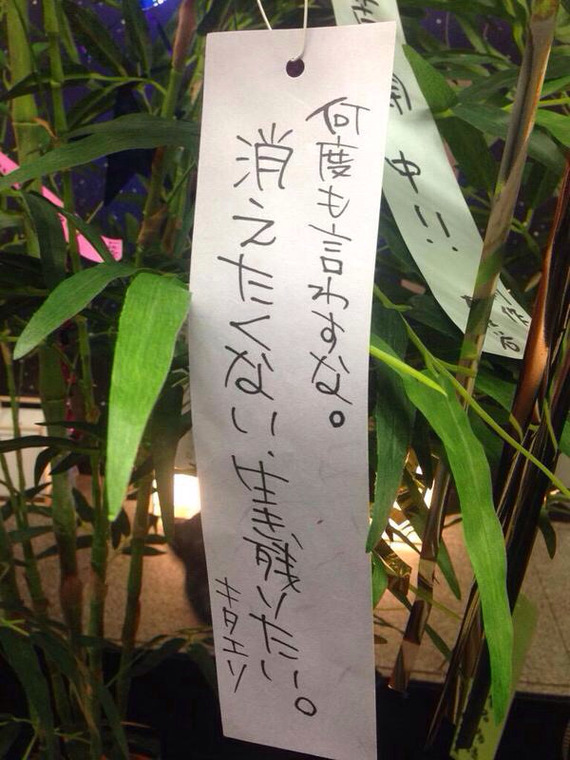 中!!
何度も言わすな。
消えたくない生き残りたい。
キタエリ